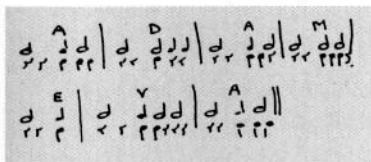 A D A M
E V A